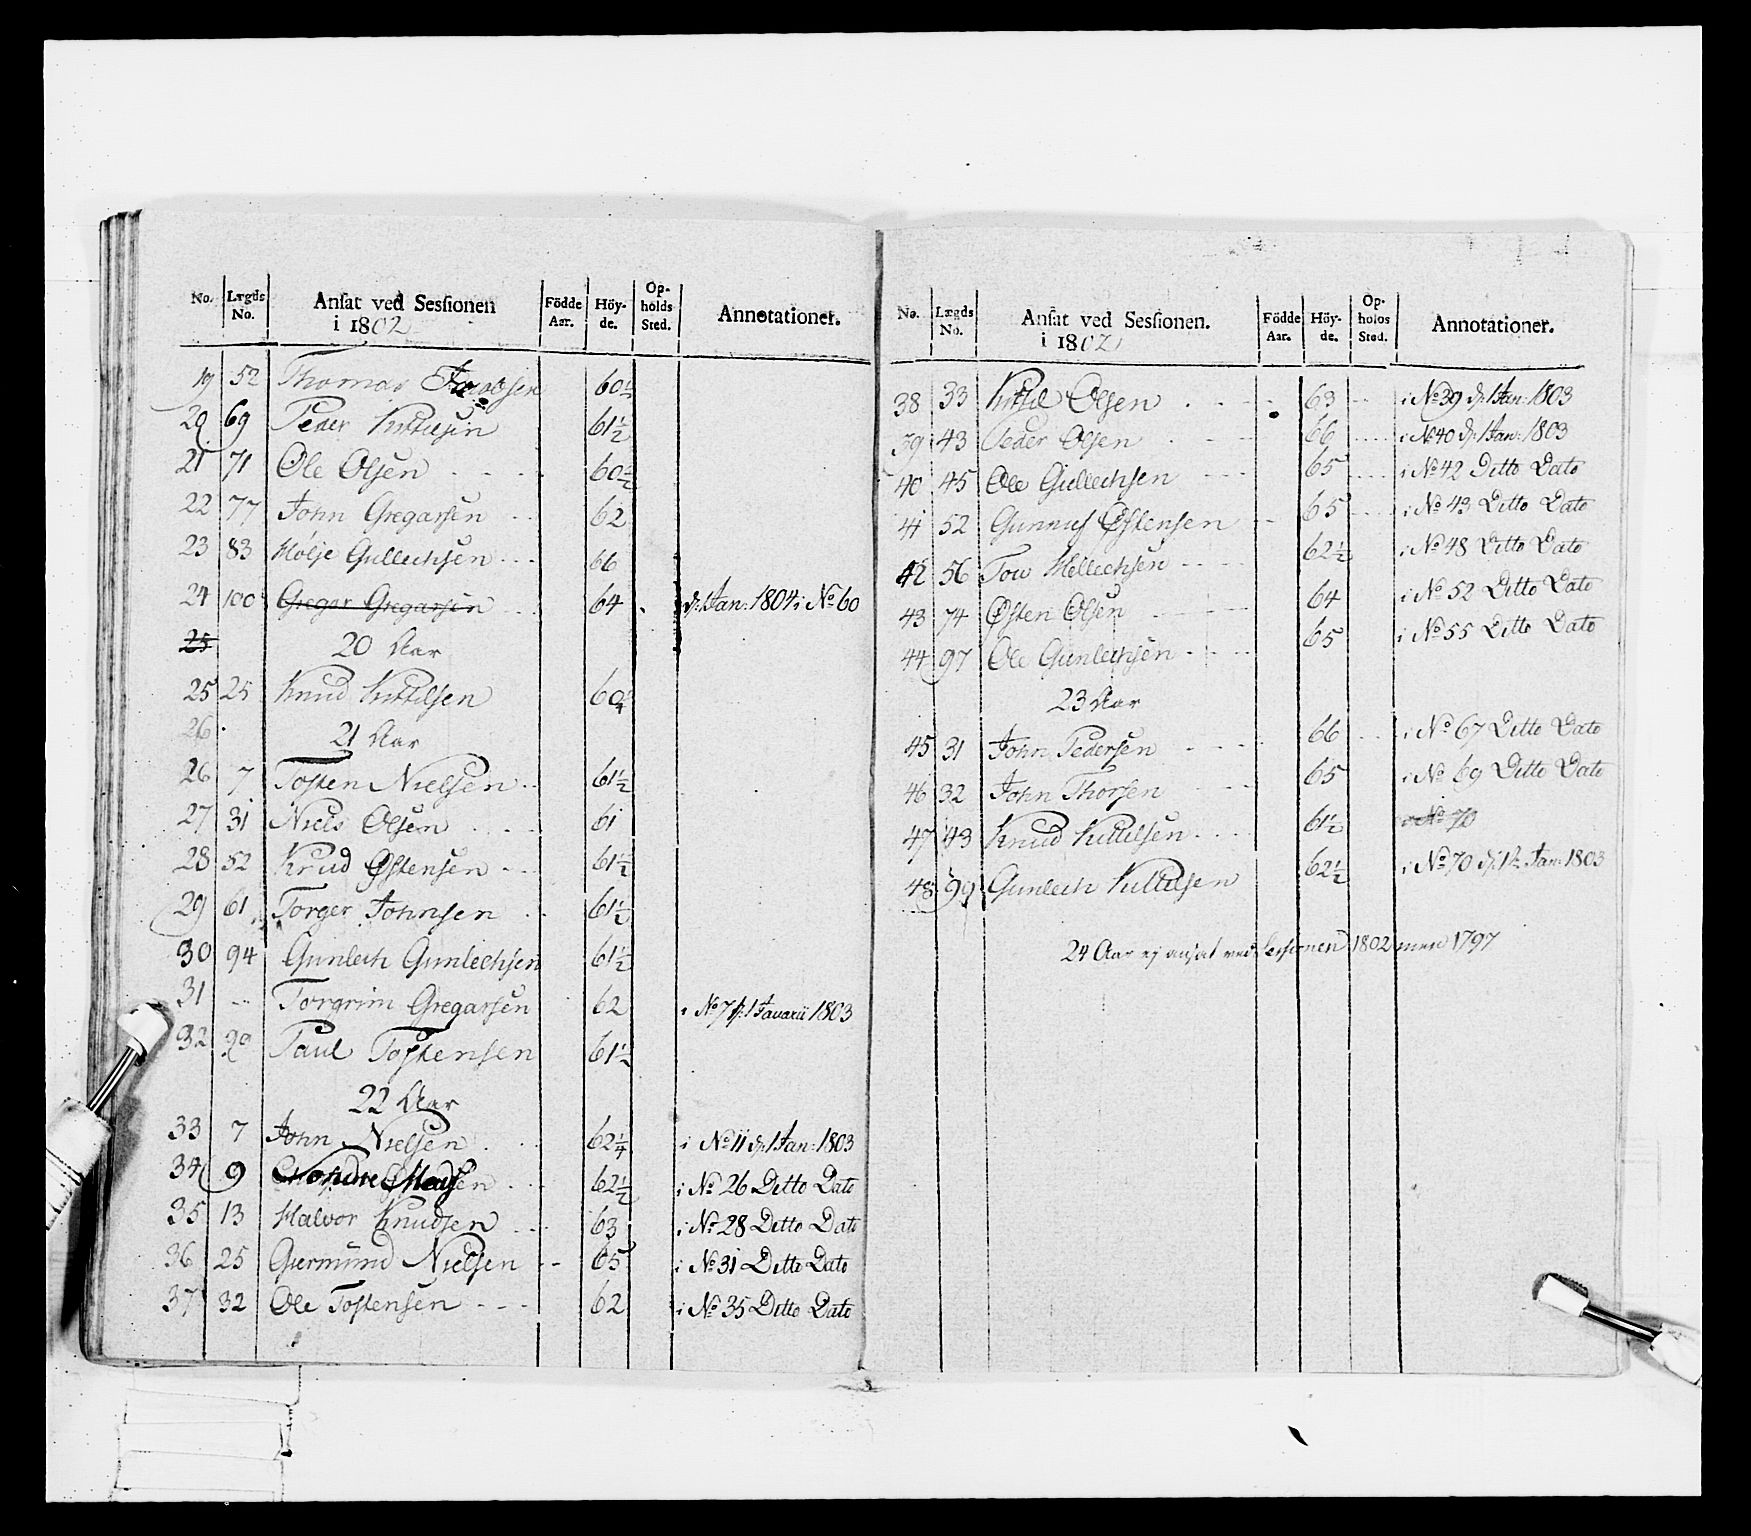 No. Lægds No. Ansat ved Sessionen i 1802 Födde Aar. Höyde. Opholds Sted. Annotationer.
19 52 Thomas Jacobsen 60½
20 69 Peder Kittilsen 61½
21 71 Ole Olsen 60½
22 77 John Gregarsen 62
23 83 Hølje Gullechsen 66
24 100 Gregar Gregarsen 64 d: 1 Jan: 1804 i No 60
25 20 Aar
25 25 Knud Kittilsen 60¼
26 21 Aar
26 7 Tosten Nielsen 61½
27 31 Niels Olsen 61
28 52 Knud Østensen 61½
29 61 Torger Johnsen 61½
30 94 Gunlech Gunlechsen 61½
31 - Torgrim Gregarsen 62 i No 7 d: 1 Januarii 1803
32 99 Paul Tostensen 61½
22 Aar
33 7 John Nielsen 62¼ i No 11 d: 1 Jan: 1803
34 9 62½ i No 26 Ditto Dato
35 13 Halvor Knudsen 63 i No 28 Ditto Dato
36 25 Giermund Nielsen 65 i No 31 Ditto Dato
37 32 Ole Tostensen 62 i No 35 Ditto Dato
No. Lægds No. Ansat ved Sessionen. i 1802 Födde Aar. Höyde. Opholds Sted. Annotationer.
38 33 Kittil Olsen 63 i No 39 d: 1 Jan: 1803
39 43 Peder Olsen 66 i No 40 d: 1 Jan: 1803
40 45 Ole Gullechsen 65 i No 42 Ditto Dato
41 52 Gunnuf Østensen 65 i No 43 Ditto Dato
42 56 Tov Hellechsen 62½ i No 48 Ditto Dato
43 74 Østen Olsen 64 i No 52 Ditto Dato
44 97 Ole Gunlechsen 65 i No 55 Ditto Dato
23 Aar
45 31 John Pedersen 66 i No 67 Ditto Dato
46 32 John Thorsen 65 i No 69 Ditto Dato
47 43 Knud Kittilsen 61½ i No 70
48 99 Gunlech Kittilsen 62½ i No 70 d: 1 Jan: 1803
24 Aar ej ansat ved Sessionen 1802 men 1797